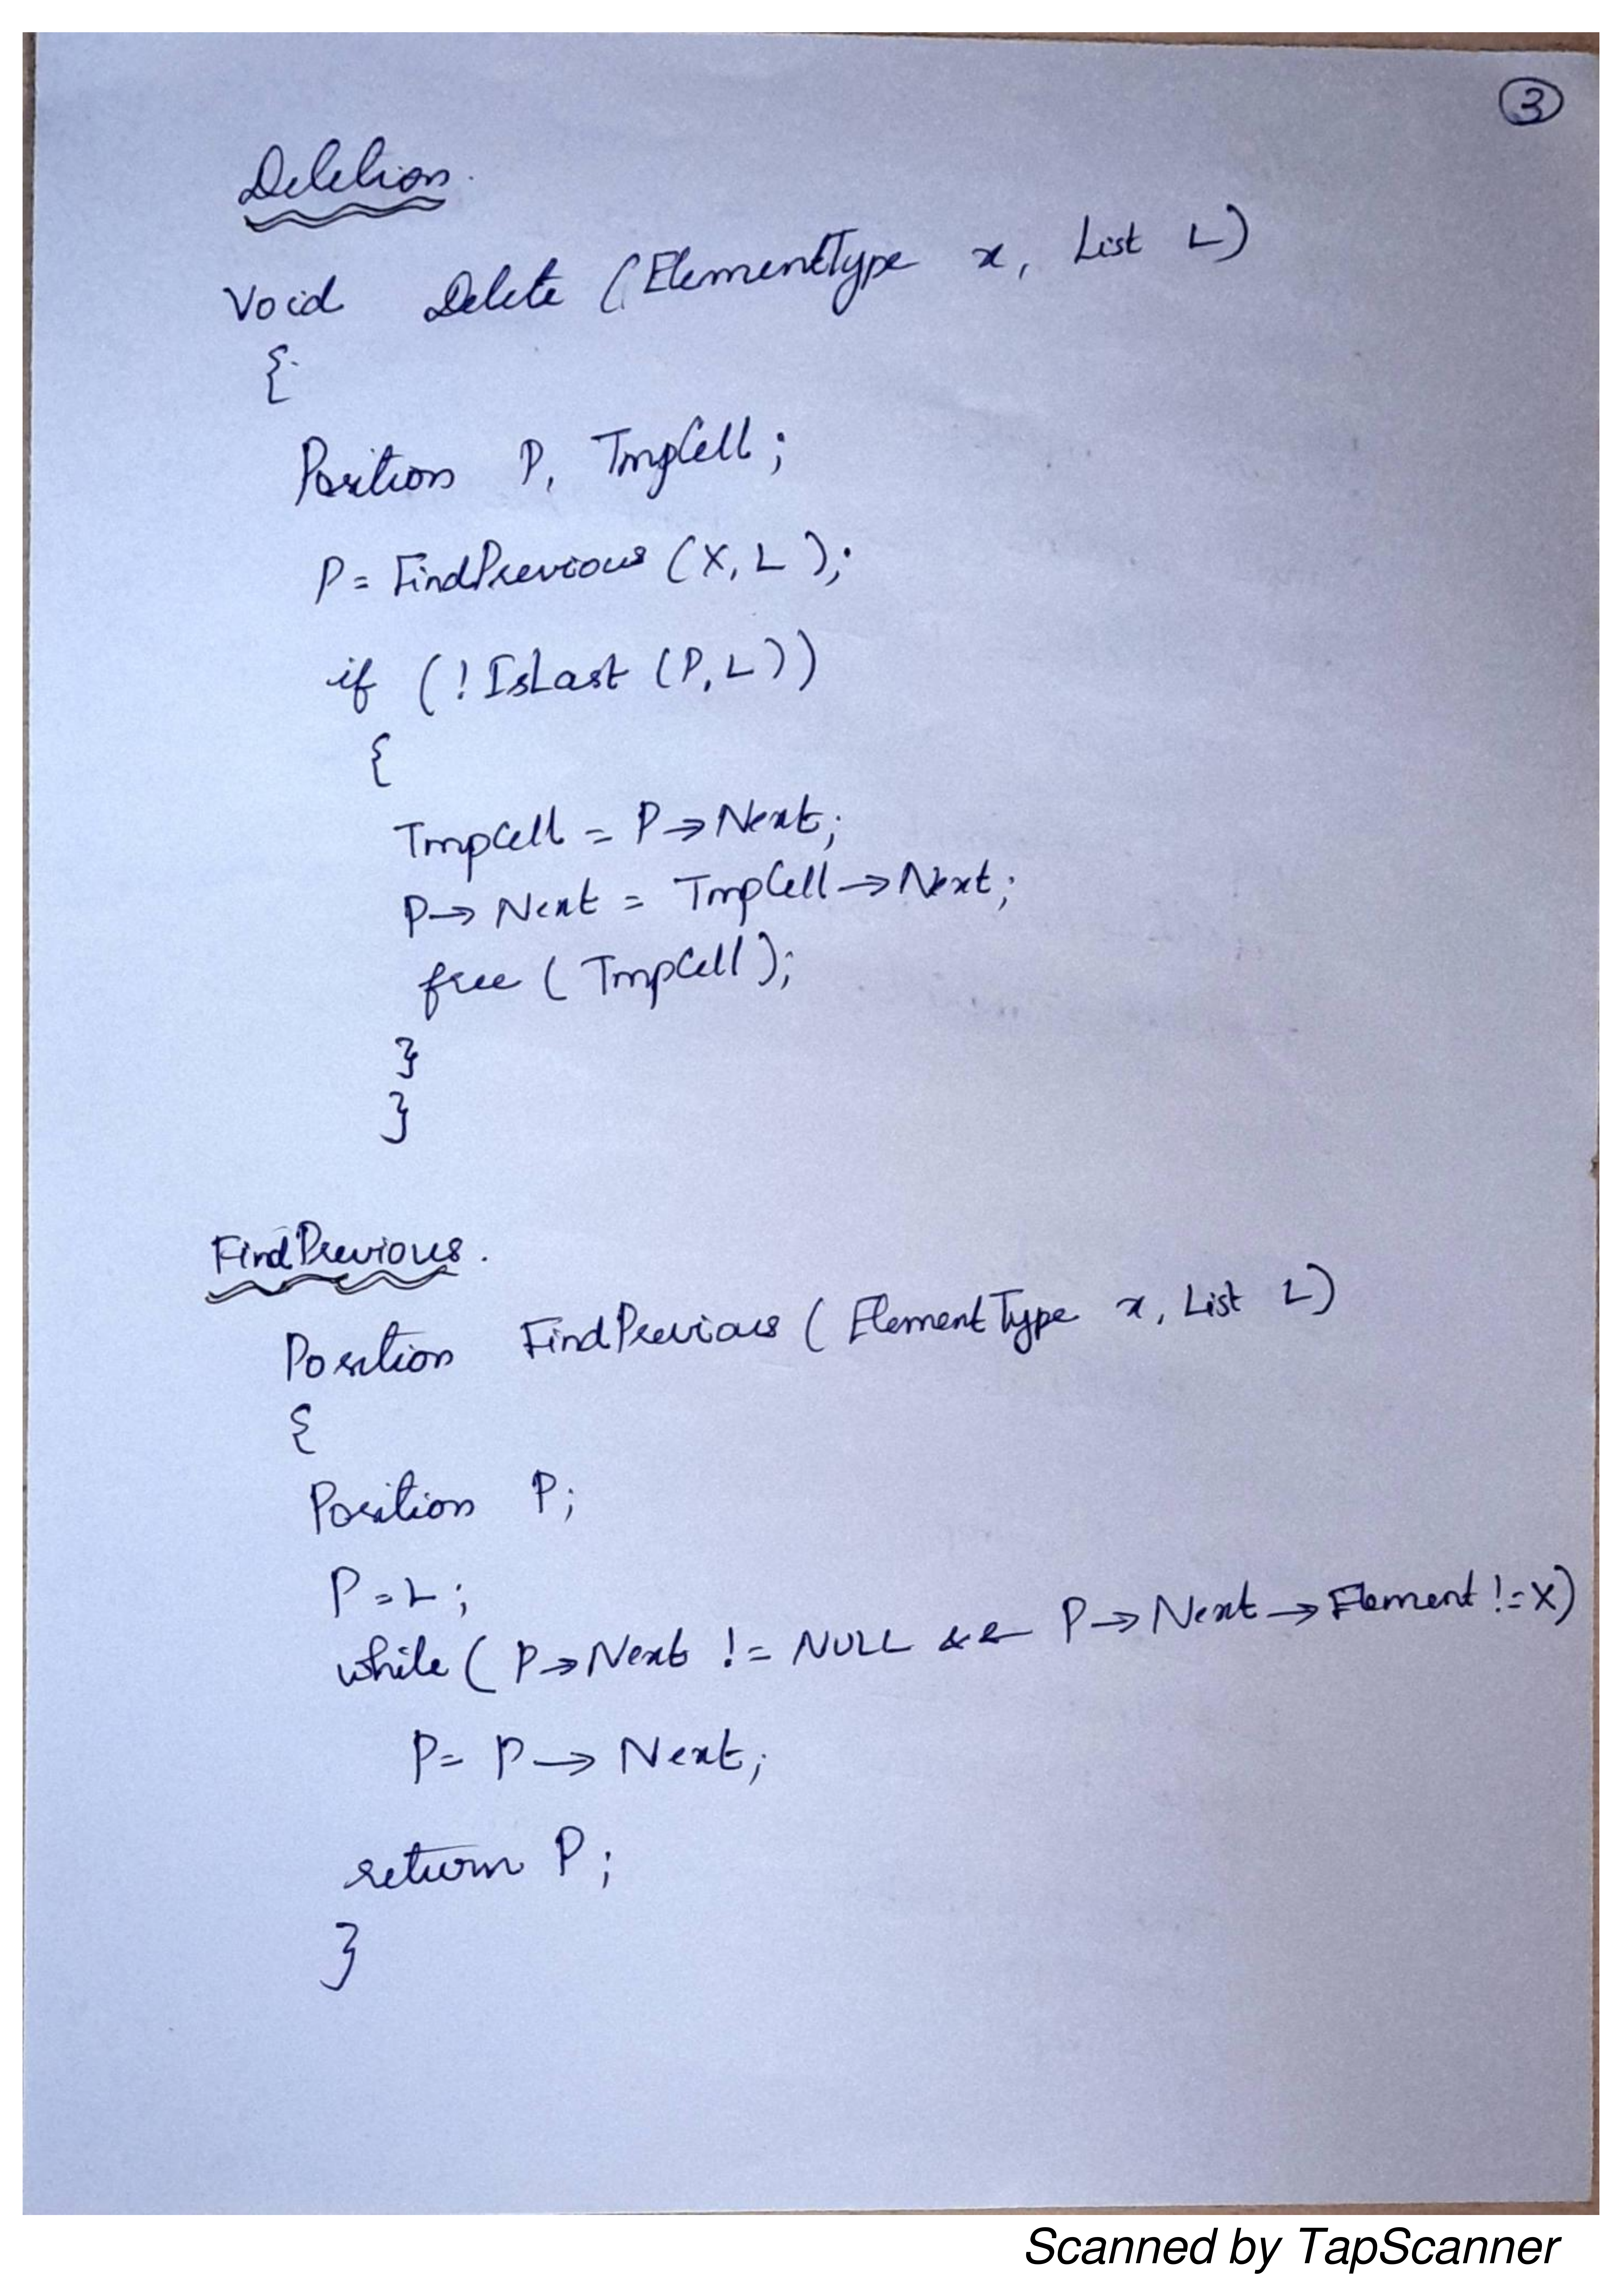 3
Deletion.
Void Delete (ElementType x, List L)
{
Position P, TmpCell;
P = FindPrevious (X, L);
if (! IsLast (P, L))
{
TmpCell = P → Next;
P → Next = TmpCell → Next;
free (TmpCell);
}
}
FindPrevious.
Position FindPrevious (ElementType x, List L)
{
Position P;
P = L;
while (P → Next != NULL && P → Next → Element != X)
P = P → Next;
return P;
}
Scanned by TapScanner